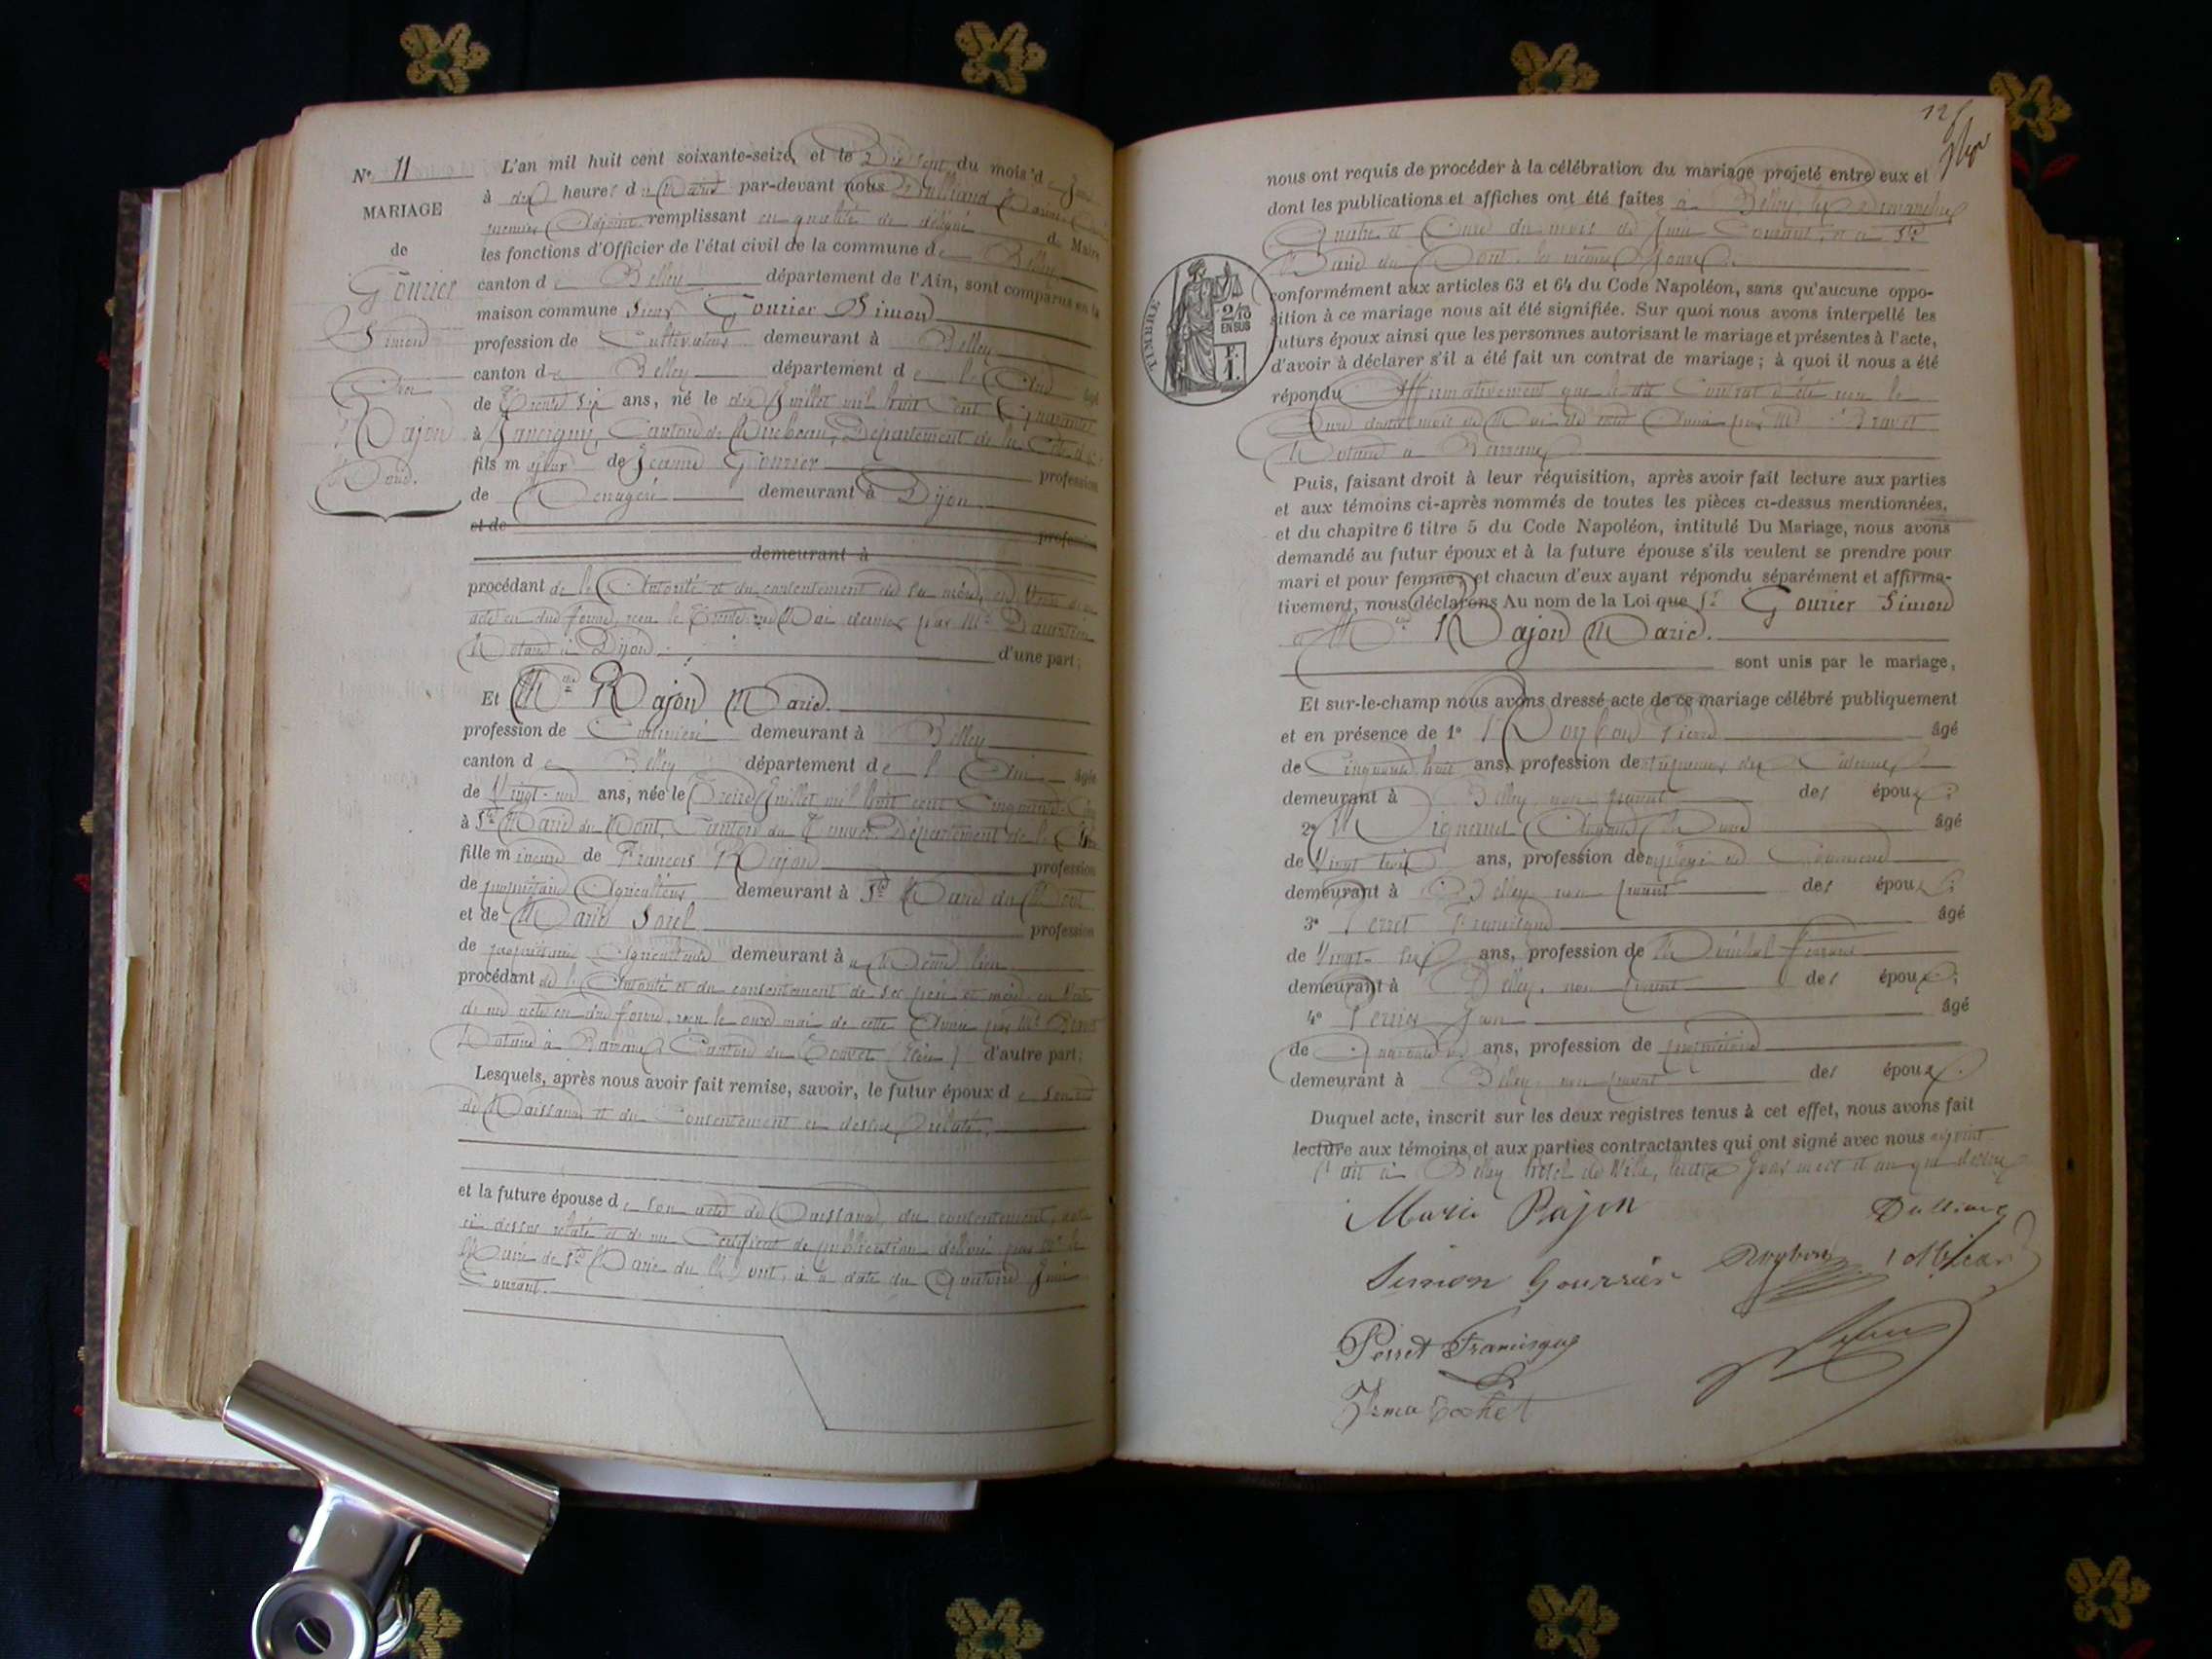 N° 11
MARIAGE
de
Gourier
Simon
Et
Rajon
Marie.
L'an mil huit cent soixante-seize, et le Dix sept du mois d Juin
à dix heures du Matin par-devant nous
premier Adjoint remplissant en qualité de délégué du Maire
les fonctions d'Officier de l'état civil de la commune de Belley
canton de Belley département de l'Ain, sont comparus en la
maison commune Sieur Gourier Simon
profession de Cultivateur demeurant à Belley
canton de Belley département de l'Ain âgé
de Trente six ans, né le dix Juillet mil huit cent quarante
à Jancigny, Canton de Mirebeau, Département de la Côte d'or
fils majeur de Jeanne Gourier profession
de Ménagère demeurant à Dijon
et de profession
demeurant à
procédant de l'Autorité et du consentement de sa mère, en vertu d'un
acte en due forme, reçu le Trente un Mai dernier par Me
Notaire à Dijon d'une part;
Et Mlle Rajon Marie.
profession de Cuisinière demeurant à Belley
canton de Belley département de l'Ain âgée
de Vingt-un ans, née le Treize Juillet mil huit cent Cinquante
à Ste Marie du Mont, Canton du Touvet, Département de l'Isère
fille mineure de François Rajon profession
de propriétaire Agriculteur demeurant à Ste Marie du Mont
et de Marie Sorel profession
de propriétaire Agriculteur demeurant à au Même lieu
procédant de l'Autorité et du consentement de ses père et mère, en vertu
d'un acte en due forme, reçu le onze mai de cette Année par Me Bravet
Notaire à Barraux, Canton du Touvet (Isère) d'autre part;
Lesquels, après nous avoir fait remise, savoir, le futur époux de son acte
de Naissance et du Consentement ci dessus relaté.
et la future épouse de son acte de Naissance, du consentement,
ci dessus relaté et d'un Certificat de publication délivré par Mr le
Maire de Ste Marie du Mont, à la date du Quatorze Juin
Courant.
12
nous ont requis de procéder à la célébration du mariage projeté entre eux et
dont les publications et affiches ont été faites à Belley, les Dimanches
Quatre et Onze du mois de Juin Courant, et à Ste
Marie du Mont, les mêmes Jours.
TIMBRE
2/10
EN SUS
F.
1.
conformément aux articles 63 et 64 du Code Napoléon, sans qu'aucune oppo-
sition à ce mariage nous ait été signifiée. Sur quoi nous avons interpellé les
futurs époux ainsi que les personnes autorisant le mariage et présentes à l'acte,
d'avoir à déclarer s'il a été fait un contrat de mariage; à quoi il nous a été
répondu Affirmativement que le dit Contrat a été reçu le
Onze du mois de Mai de cette Année par Me Bravet
Notaire à Barraux
Puis, faisant droit à leur réquisition, après avoir fait lecture aux parties
et aux témoins ci-après nommés de toutes les pièces ci-dessus mentionnées,
et du chapitre 6 titre 5 du Code Napoléon, intitulé Du Mariage, nous avons
demandé au futur époux et à la future épouse s'ils veulent se prendre pour
mari et pour femme, et chacun d'eux ayant répondu séparément et affirma-
tivement, nous déclarons Au nom de la Loi que Sr Gourier Simon
et Mlle Rajon Marie.
sont unis par le mariage,
Et sur-le-champ nous avons dressé acte de ce mariage célébré publiquement
et en présence de 1° Pierre âgé
de Cinquante huit ans, profession de
demeurant à Belley, non parent des époux;
2° âgé
de Vingt trois ans, profession de employé de Commerce
demeurant à Belley, non parent des époux;
3° Perret Francisque âgé
de Vingt-six ans, profession de Maréchal ferrant
demeurant à Belley, non parent des époux;
4° Perrier Jean âgé
de ans, profession de propriétaire
demeurant à Belley, non parent des époux.
Duquel acte, inscrit sur les deux registres tenus à cet effet, nous avons fait
lecture aux témoins et aux parties contractantes qui ont signé avec nous adjoint
Fait à Belley hôtel de Ville, les dits Jour mois et an que dessus
Marie Rajon
Simon Gourrier
Perret Francisque